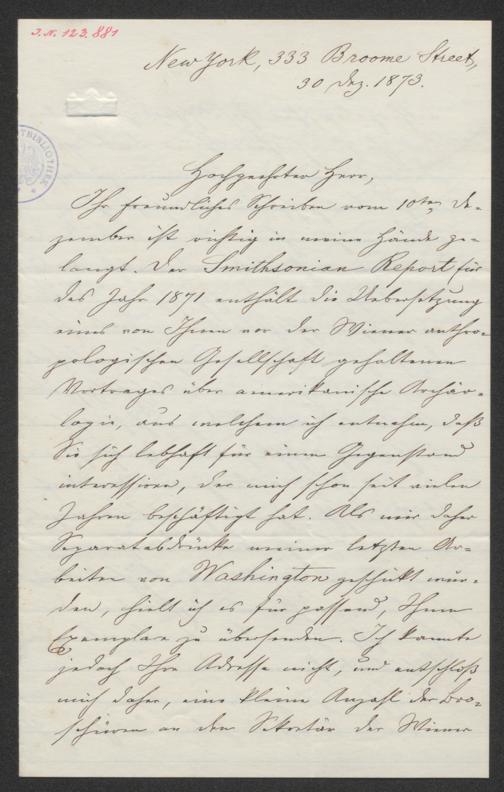 I.N. 123.881
New York, 333 Broome Street,
30 Dez. 1873.
BIBLIOTHEK
Hochgeehrter Herr,
Ihr freundliches Schreiben vom 10ten De-
zember ist richtig in meine Hände ge-
langt. Der Smithsonian Report für
das Jahr 1871 enthält die Uebersetzung
eines von Ihnen vor der Wiener anthro-
pologischen Gesellschaft gehaltenen
Vortrages über amerikanische Archäo-
logie, aus welchem ich entnahm, daß
Sie sich lebhaft für einen Gegenstand
interessiren, der mich schon seit vielen
Jahren beschäftigt hat. Als mir daher
Separatabdrücke meiner letzten Ar-
beiten von Washington geschickt wur-
den, hielt ich es für passend, Ihnen
Exemplare zu übersenden. Ich kannte
jedoch Ihre Adresse nicht, und entschloß
mich daher, eine kleine Anzahl der Bro-
schüren an den Sekretär der Wiener